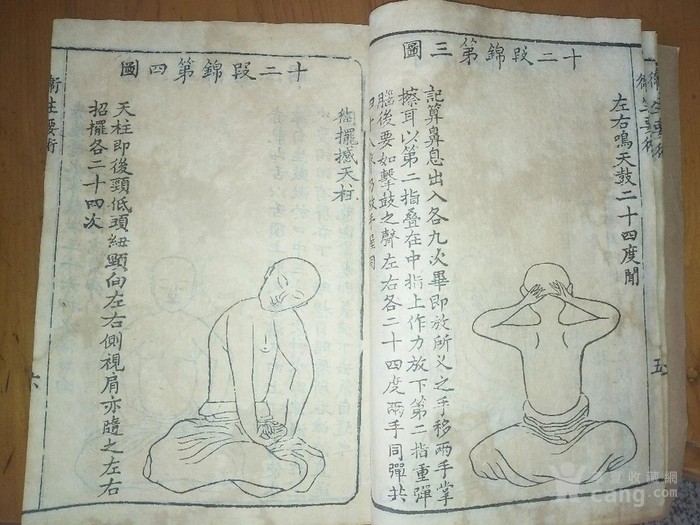 十二段錦第三圖
左右鳴天鼓二十四度聞
記算鼻息出入各九次畢即放所叉之手移兩手掌
擦耳以第二指叠在中指上作力放下第二指重彈
腦後要如擊鼓之聲左右各二十四度兩手同彈共
四十八聲仍放手握固
五
十二段錦第四圖
微擺撼天柱
天柱即後頸低頭紐頸向左右側視肩亦隨之左右
招擺各二十四次
衛生要術
六
衛生要術